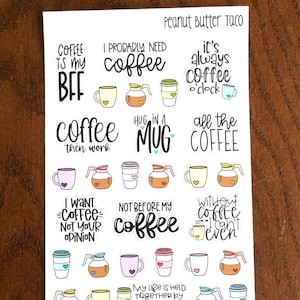 Peanut Butter Taco
COFFEE
is my
BFF
I PROBABLY NEED
coffee
it's
always
coffee
o'clock
coffee
then work
HUG IN A
MUG
all the
COFFEE
I WANT
COFFEE
NOT YOUR
OPINION
NOT BEFORE MY
coffee
without
coffee
I can't
even
MY LIFE IS HELD
TOGETHER BY